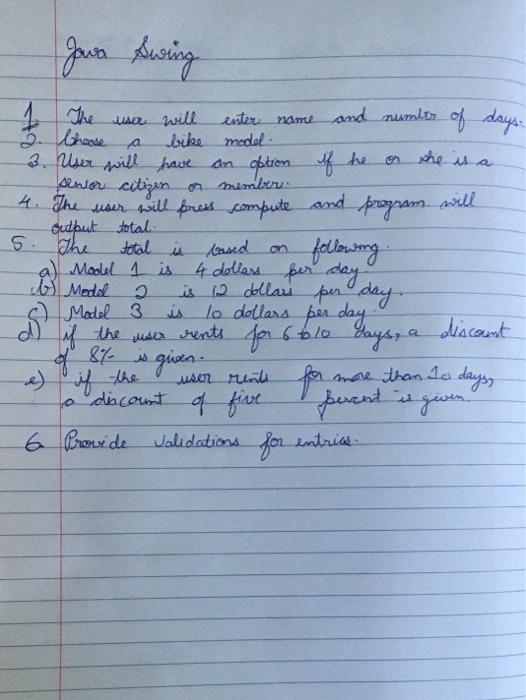 Java Swing
1. The user will enter name and number of days.
2. Choose a bike model.
3. User will have an option if he or she is a
senior citizen or member.
4. The user will press compute and program will
output total.
5. The total is based on following.
a) Model 1 is 4 dollars per day.
b) Model 2 is 12 dollars per day.
c) Model 3 is 10 dollars per day.
d) if the user rents for 6 to 10 days, a discount
of 8% is given.
e) if the user rents for more than 10 days,
a discount of five percent is given.
6 Provide validations for entries.